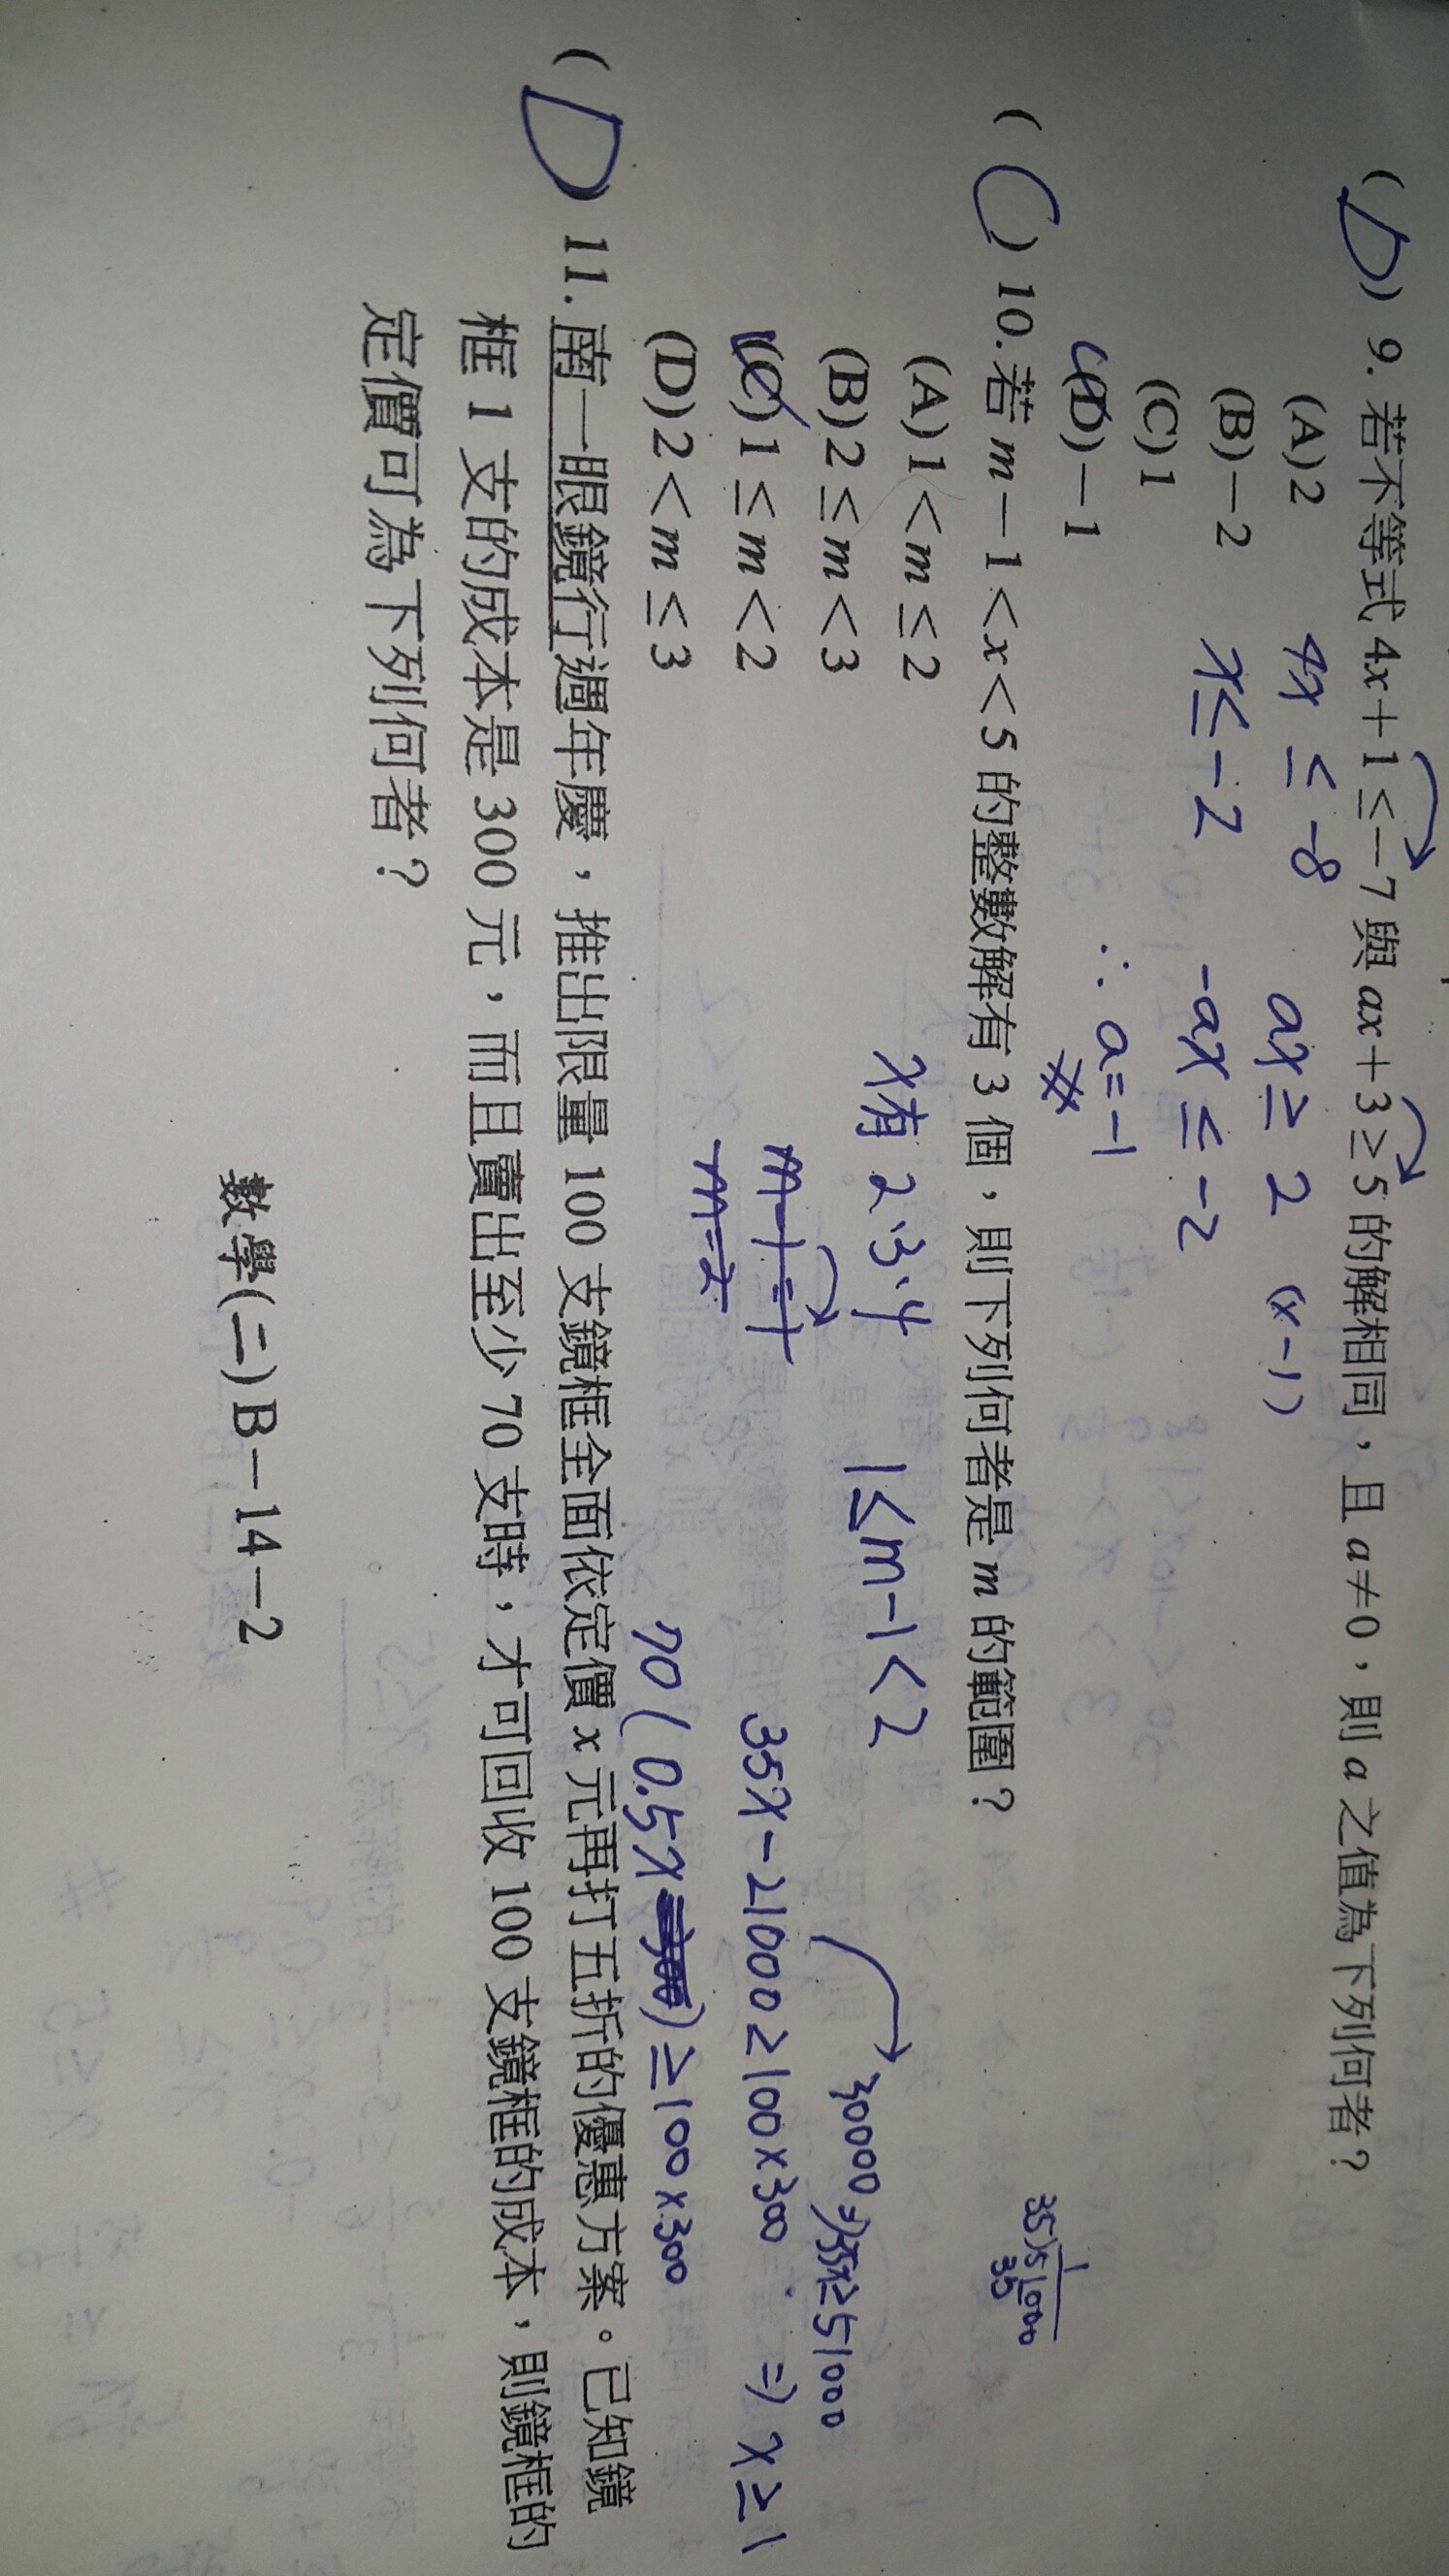 (D) 9. 若不等式 4x＋1≤－7 與 ax＋3≥5 的解相同，且 a≠0，則 a 之值為下列何者？
(A) 2
4x ≤ -8
ax ≥ 2 (x -1)
(B)－2
x ≤ -2
-ax ≤ -2
(C) 1
(D)－1
∴ a = -1
(C) 10. 若 m－1＜x＜5 的整數解有 3 個，則下列何者是 m 的範圍？
(A) 1＜m≤2
x有 2、3、4
1≤m-1<2
(B) 2≤m＜3
(C) 1≤m＜2
m-1=1
m=2
(D) 2＜m≤3
35
35)51000
30000 => 35x≥51000
35x-21000≥100×300 => x≥1
70(0.5x) ≥100×300
(D) 11. 南一眼鏡行週年慶，推出限量 100 支鏡框全面依定價 x 元再打五折的優惠方案。已知鏡
框 1 支的成本是 300 元，而且賣出至少 70 支時，才可回收 100 支鏡框的成本，則鏡框的
定價可為下列何者？
數學(二)B－14－2